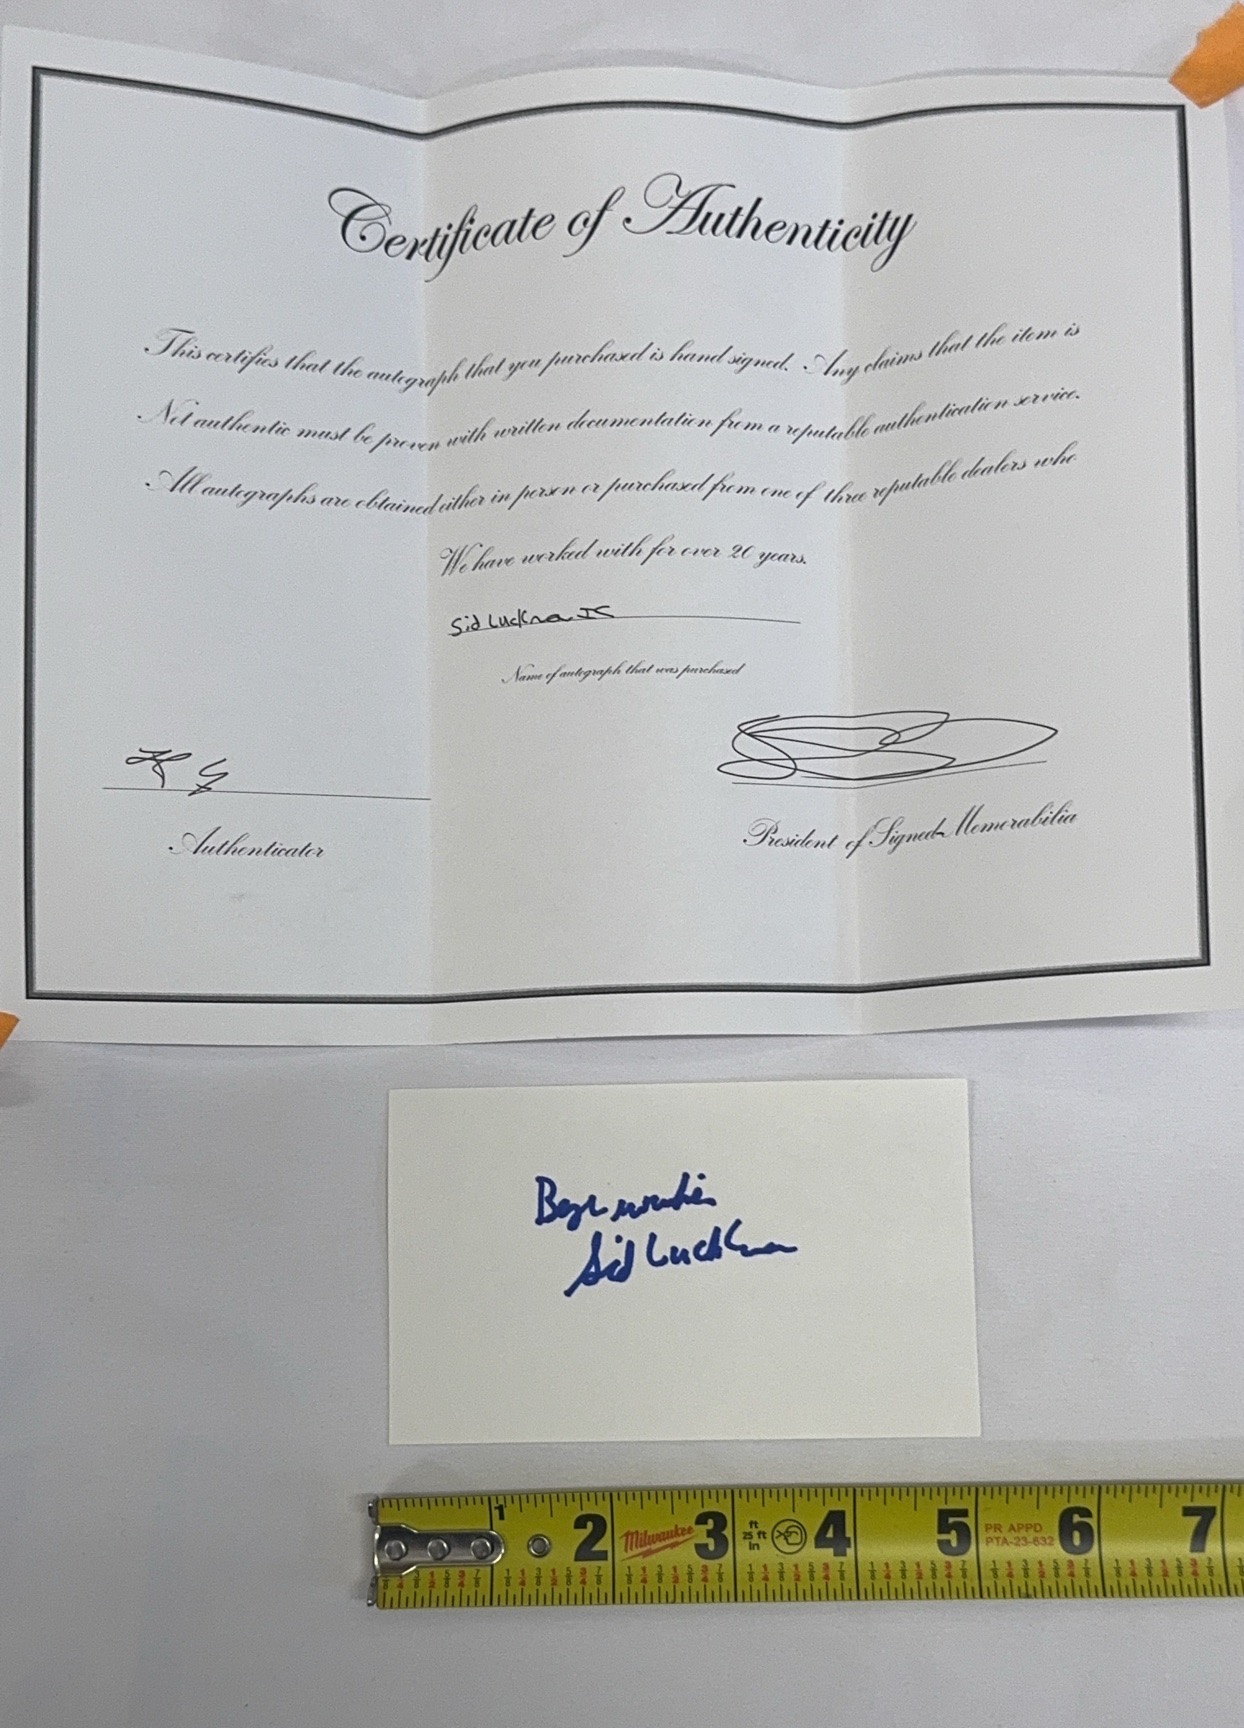 Certificate of Authenticity
This certifies that the autograph that you purchased is hand signed. Any claims that the item is
Not authentic must be proven with written documentation from a reputable authentication service.
All autographs are obtained either in person or purchased from one of three reputable dealers who
We have worked with for over 20 years.
Sid Luckman IC
Name of autograph that was purchased
Authenticator
President of Signed Memorabilia
Best wishes
Sid Luckman
1 2 Milwaukee 3 ft 25 ft in 4 5 PR APPD PTA-23-632 6 7